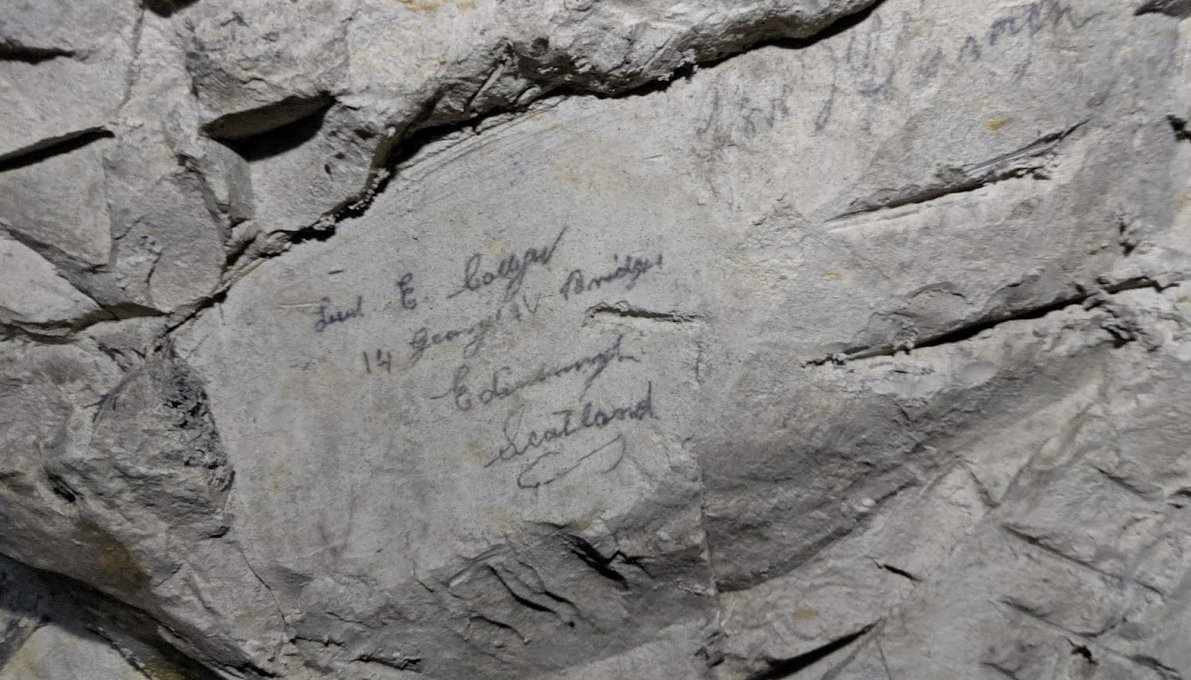 Lieut E. Collyar
14 George IV Bridge
Edinburgh
Scotland